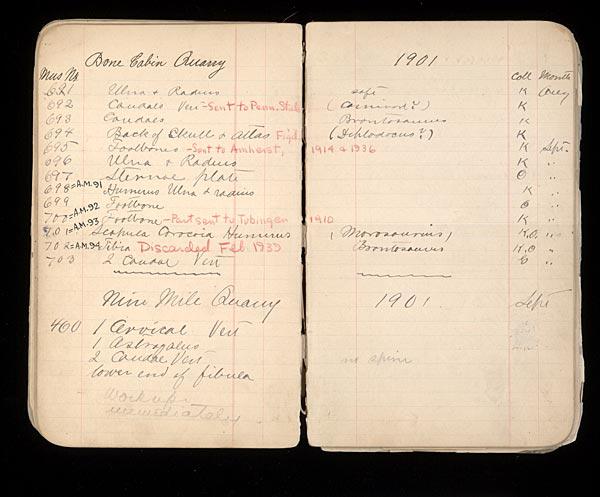 Bone Cabin Quarry 1901
Mus No. Coll Month
691 Ulna & Radius safe K Aug
692 Caudals Vert - Sent to Penn. State (Camired?) K
693 Caudals Brontosaurus K
694 Back of Skull & Atlas Fig'd. (Diplodocus?) K
695 Footbones - Sent to Amherst, 1914 & 1936 K Sept.
696 Ulna & Radius K "
697 Sternae plate O "
698 = A.M. 91 Humerus Ulna & radius K "
699 Footbone O "
700 = A.M. 92 Footbone - Part sent to Tubingen 1910 K "
701 = A.M. 93 Scapula Coracoia Humerus (Morosaurus) K.O. "
702 = A.M. 94 Tibia Discarded Feb 1939 Brontosaurus K.O "
703 2 Caudal Vert O "
Nine Mile Quarry 1901 Sept
460 1 Cervical Vert
1 Astragalus
2 Caudal Vert no spine
lower end of fibula
Work up
immediately